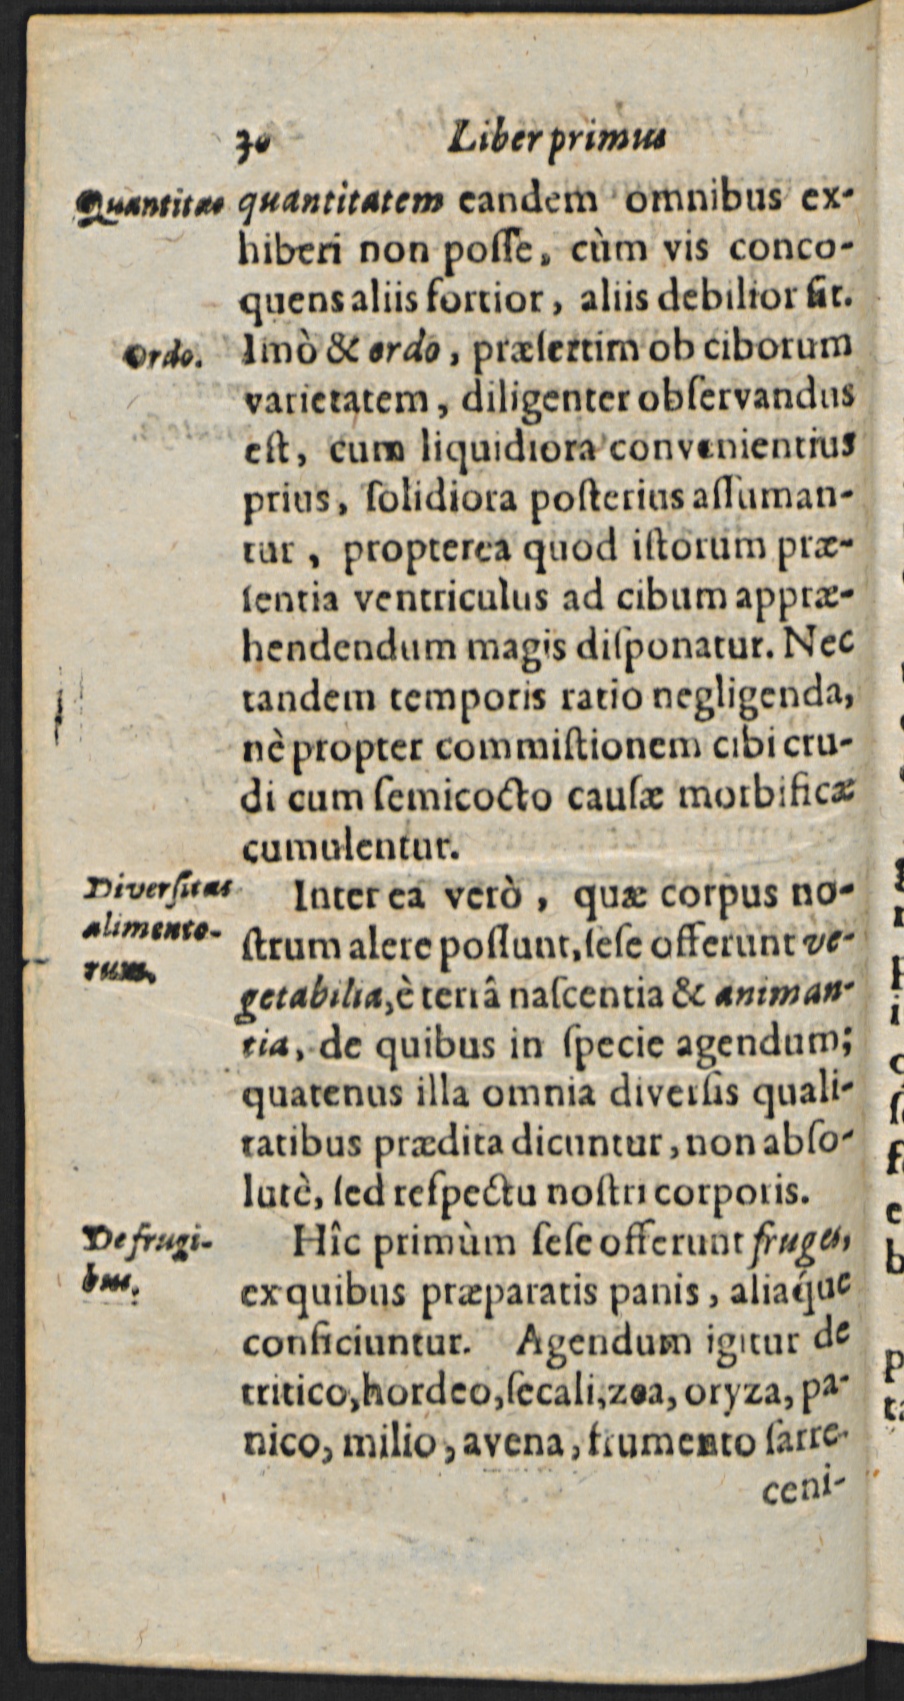 30 Liber primus
Quantitas quantitatem eandem omnibus ex-
hiberi non posse, cùm vis conco-
quens aliis fortior, aliis debilior sit.
Ordo. Imò & ordo, præsertim ob ciborum
varietatem, diligenter observandus
est, cum liquidiora convenientius
prius, solidiora posterius assuman-
tur, propterea quod istorum præ-
sentia ventriculus ad cibum appræ-
hendendum magis disponatur. Nec
tandem temporis ratio negligenda,
nè propter commistionem cibi cru-
di cum semicocto causæ morbificæ
cumulentur.
Diversitas Inter ea verò, quæ corpus no-
alimento- strum alere possunt, sese offerunt ve-
rum. getabilia, è terrâ nascentia & animan-
tia, de quibus in specie agendum;
quatenus illa omnia diversis quali-
tatibus prædita dicuntur, non abso-
lutè, sed respectu nostri corporis.
De frugi- Hîc primùm sese offerunt fruges,
bus. ex quibus præparatis panis, aliaq́ue
conficiuntur. Agendum igitur de
tritico, hordeo, secali, zea, oryza, pa-
nico, milio, avena, frumento sarre-
ceni-